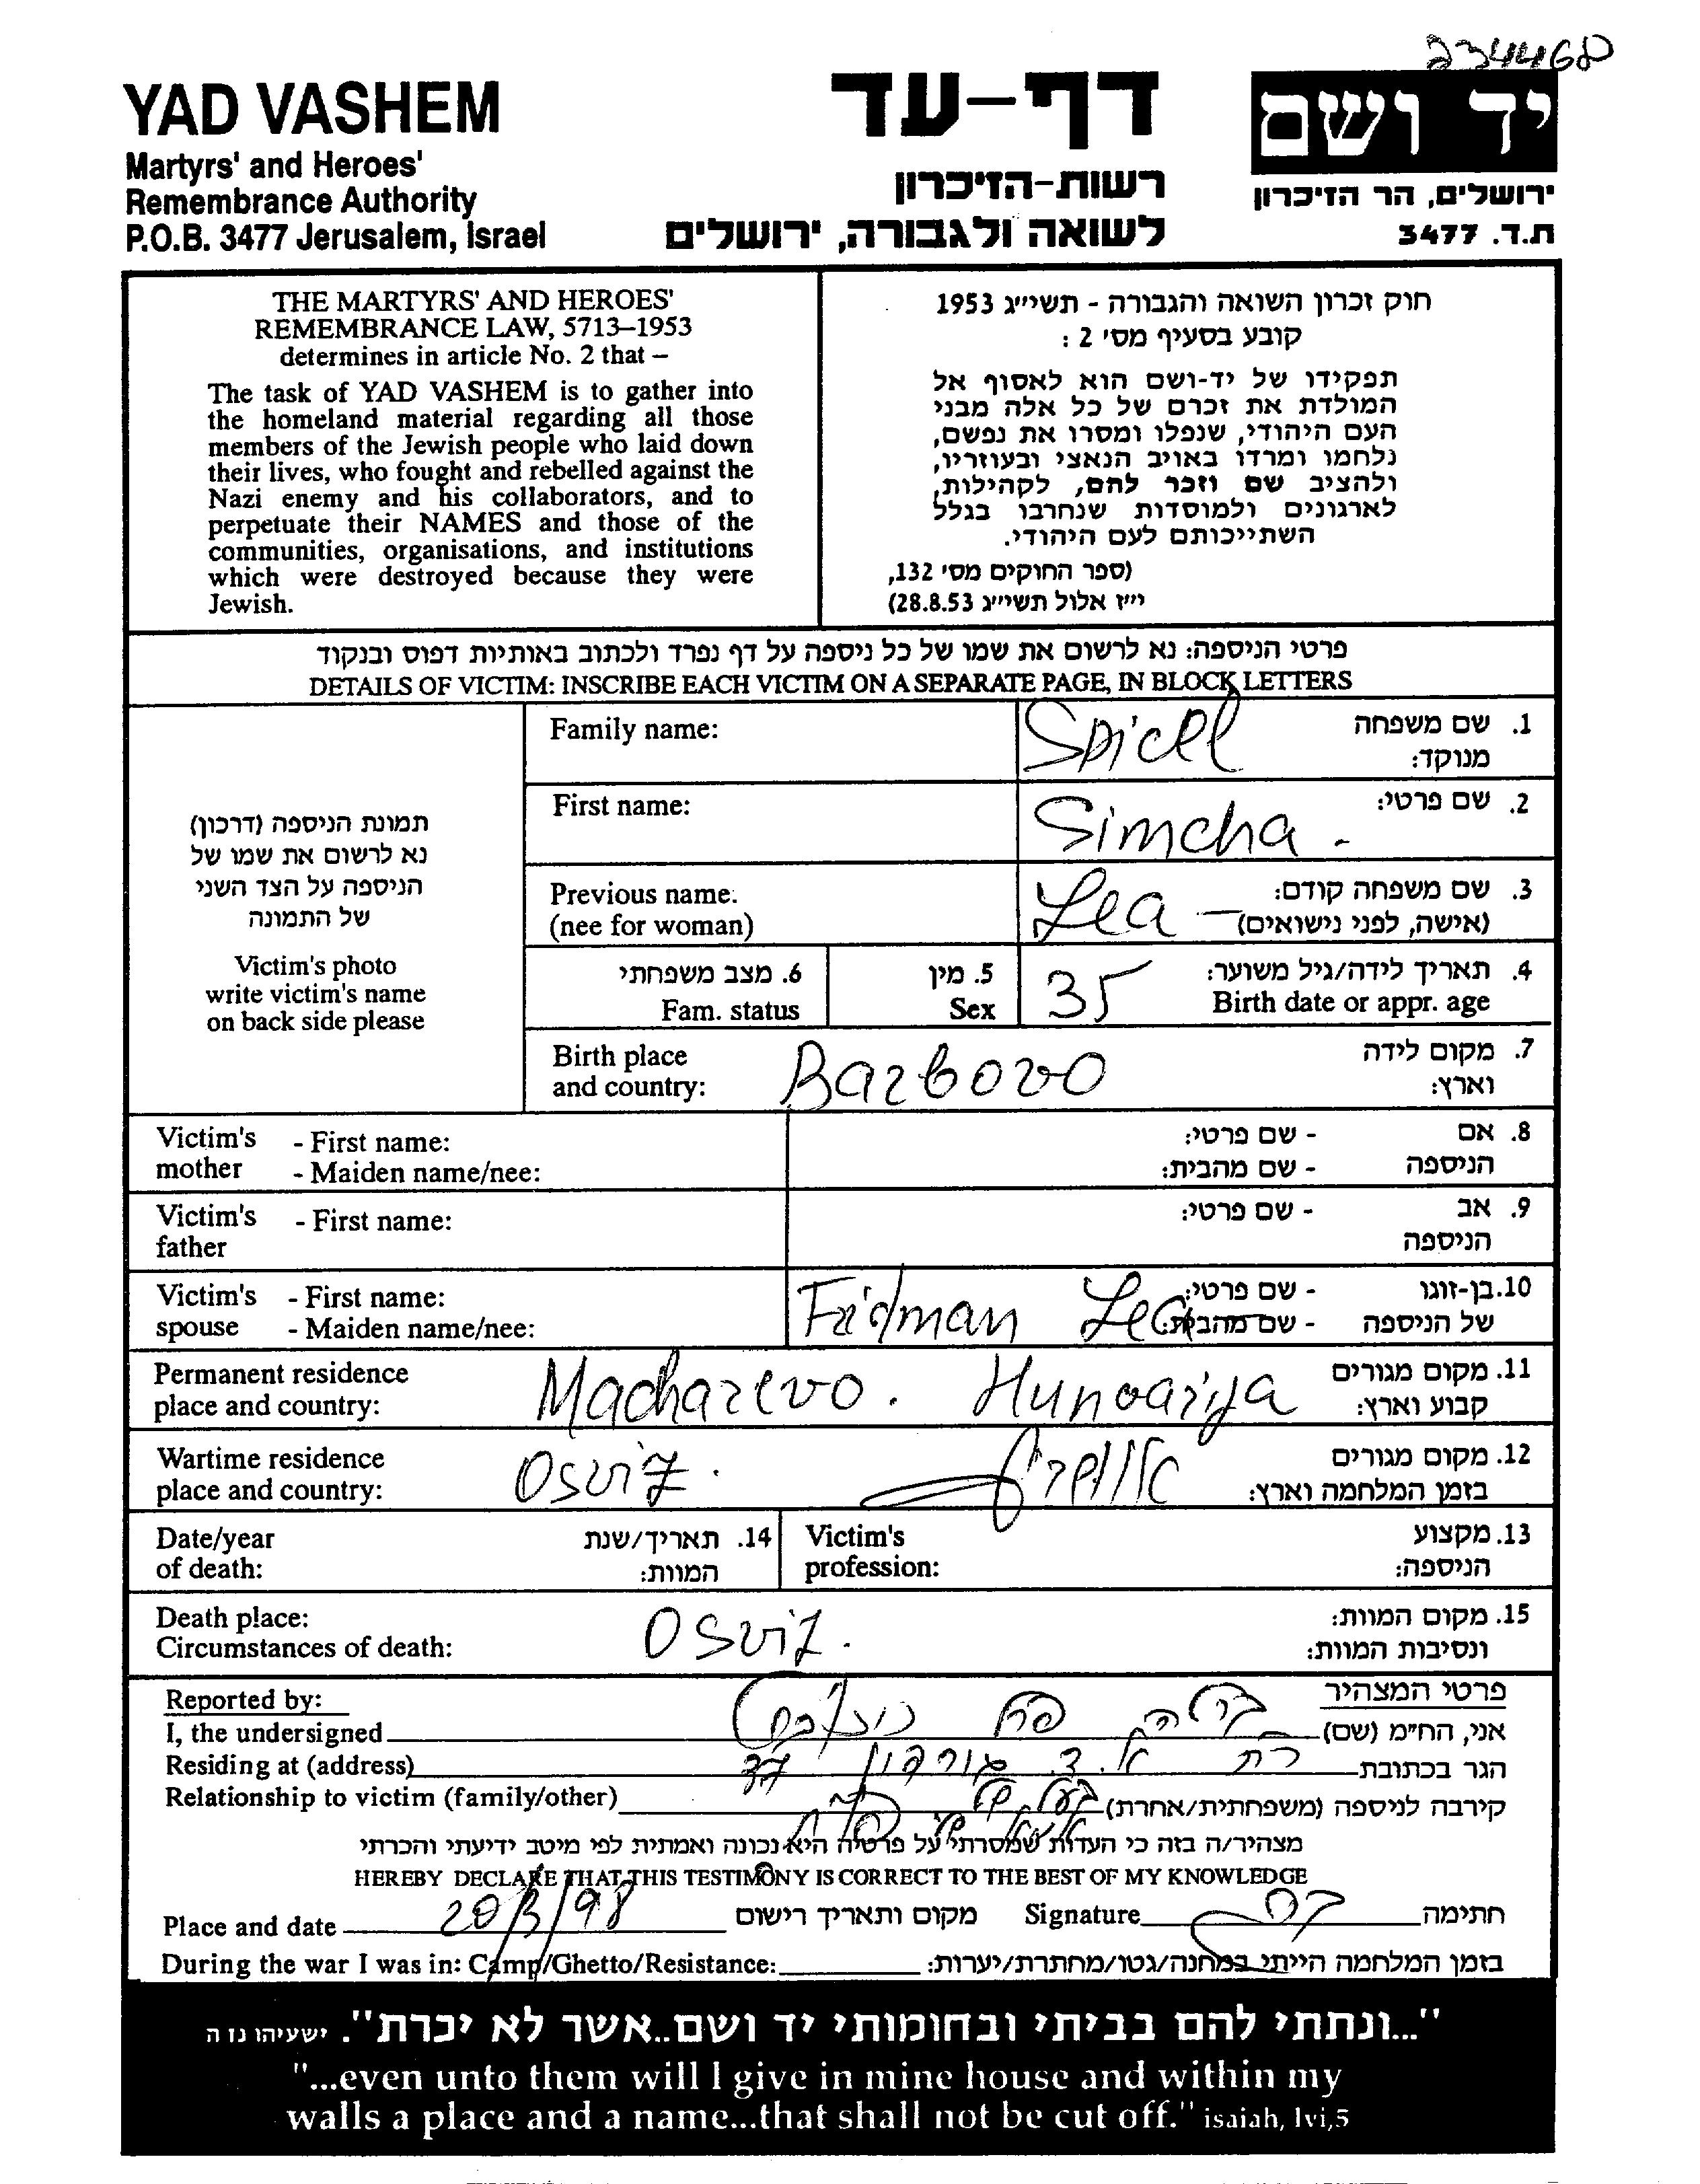 234460
YAD VASHEM
Martyrs' and Heroes'
Remembrance Authority
P.O.B. 3477 Jerusalem, Israel
דף-עד
רשות-הזיכרון
לשואה ולגבורה, ירושלים
יד ושם
ירושלים, הר הזיכרון
ת.ד. 3477
THE MARTYRS' AND HEROES'
REMEMBRANCE LAW, 5713–1953
determines in article No. 2 that –
The task of YAD VASHEM is to gather into
the homeland material regarding all those
members of the Jewish people who laid down
their lives, who fought and rebelled against the
Nazi enemy and his collaborators, and to
perpetuate their NAMES and those of the
communities, organisations, and institutions
which were destroyed because they were
Jewish.
חוק זכרון השואה והגבורה - תשי״ג 1953
קובע בסעיף מס' 2 :
תפקידו של יד-ושם הוא לאסוף אל
המולדת את זכרם של כל אלה מבני
העם היהודי, שנפלו ומסרו את נפשם,
נלחמו ומרדו באויב הנאצי ובעוזריו,
ולהציב שם וזכר להם, לקהילות,
לארגונים ולמוסדות שנחרבו בגלל
השתייכותם לעם היהודי.
(ספר החוקים מס' 132,
י״ז אלול תשי״ג 28.8.53)
פרטי הניספה: נא לרשום את שמו של כל ניספה על דף נפרד ולכתוב באותיות דפוס ובנקוד
DETAILS OF VICTIM: INSCRIBE EACH VICTIM ON A SEPARATE PAGE, IN BLOCK LETTERS
תמונת הניספה (דרכון)
נא לרשום את שמו של
הניספה על הצד השני
של התמונה
Victim's photo
write victim's name
on back side please
Family name: Spicel 1. שם משפחה
מנוקד:
First name: Simcha - 2. שם פרטי:
Previous name: Lea – 3. שם משפחה קודם:
(nee for woman) (אישה, לפני נישואים)
6. מצב משפחתי 5. מין 35 4. תאריך לידה/גיל משוער:
Fam. status Sex Birth date or appr. age
Birth place Barbovo 7. מקום לידה
and country: וארץ:
Victim's - First name: - שם פרטי: 8. אם
mother - Maiden name/nee: - שם מהבית: הניספה
Victim's - First name: - שם פרטי: 9. אב
father הניספה
Victim's - First name: Fridman Lea - שם פרטי: 10. בן-זוגו
spouse - Maiden name/nee: - שם מהבית: של הניספה
Permanent residence Macharevo. 11. מקום מגורים
place and country: קבוע וארץ:
Wartime residence Osviz. 12. מקום מגורים
place and country: בזמן המלחמה וארץ:
Date/year 14. תאריך/שנת Victim's 13. מקצוע
of death: המוות: profession: הניספה:
Death place: Osviz. 15. מקום המוות:
Circumstances of death: ונסיבות המוות:
Reported by: פרטי המצהיר
I, the undersigned אני, החי״מ (שם)
Residing at (address) הגר בכתובת
Relationship to victim (family/other) קירבה לניספה (משפחתית/אחרת)
מצהיר/ה בזה כי העדות שמסרתי על פרטיה היא נכונה ואמתית לפי מיטב ידיעתי והכרתי
HEREBY DECLARE THAT THIS TESTIMONY IS CORRECT TO THE BEST OF MY KNOWLEDGE
Place and date 20/3/98 מקום ותאריך רישום Signature חתימה
During the war I was in: Camp/Ghetto/Resistance: בזמן המלחמה הייתי במחנה/גטו/מחתרת/יערות:
"...ונתתי להם בביתי ובחומותי יד ושם..אשר לא יכרת". ישעיהו נז ה
"...even unto them will I give in mine house and within my
walls a place and a name...that shall not be cut off." isaiah, lvi,5